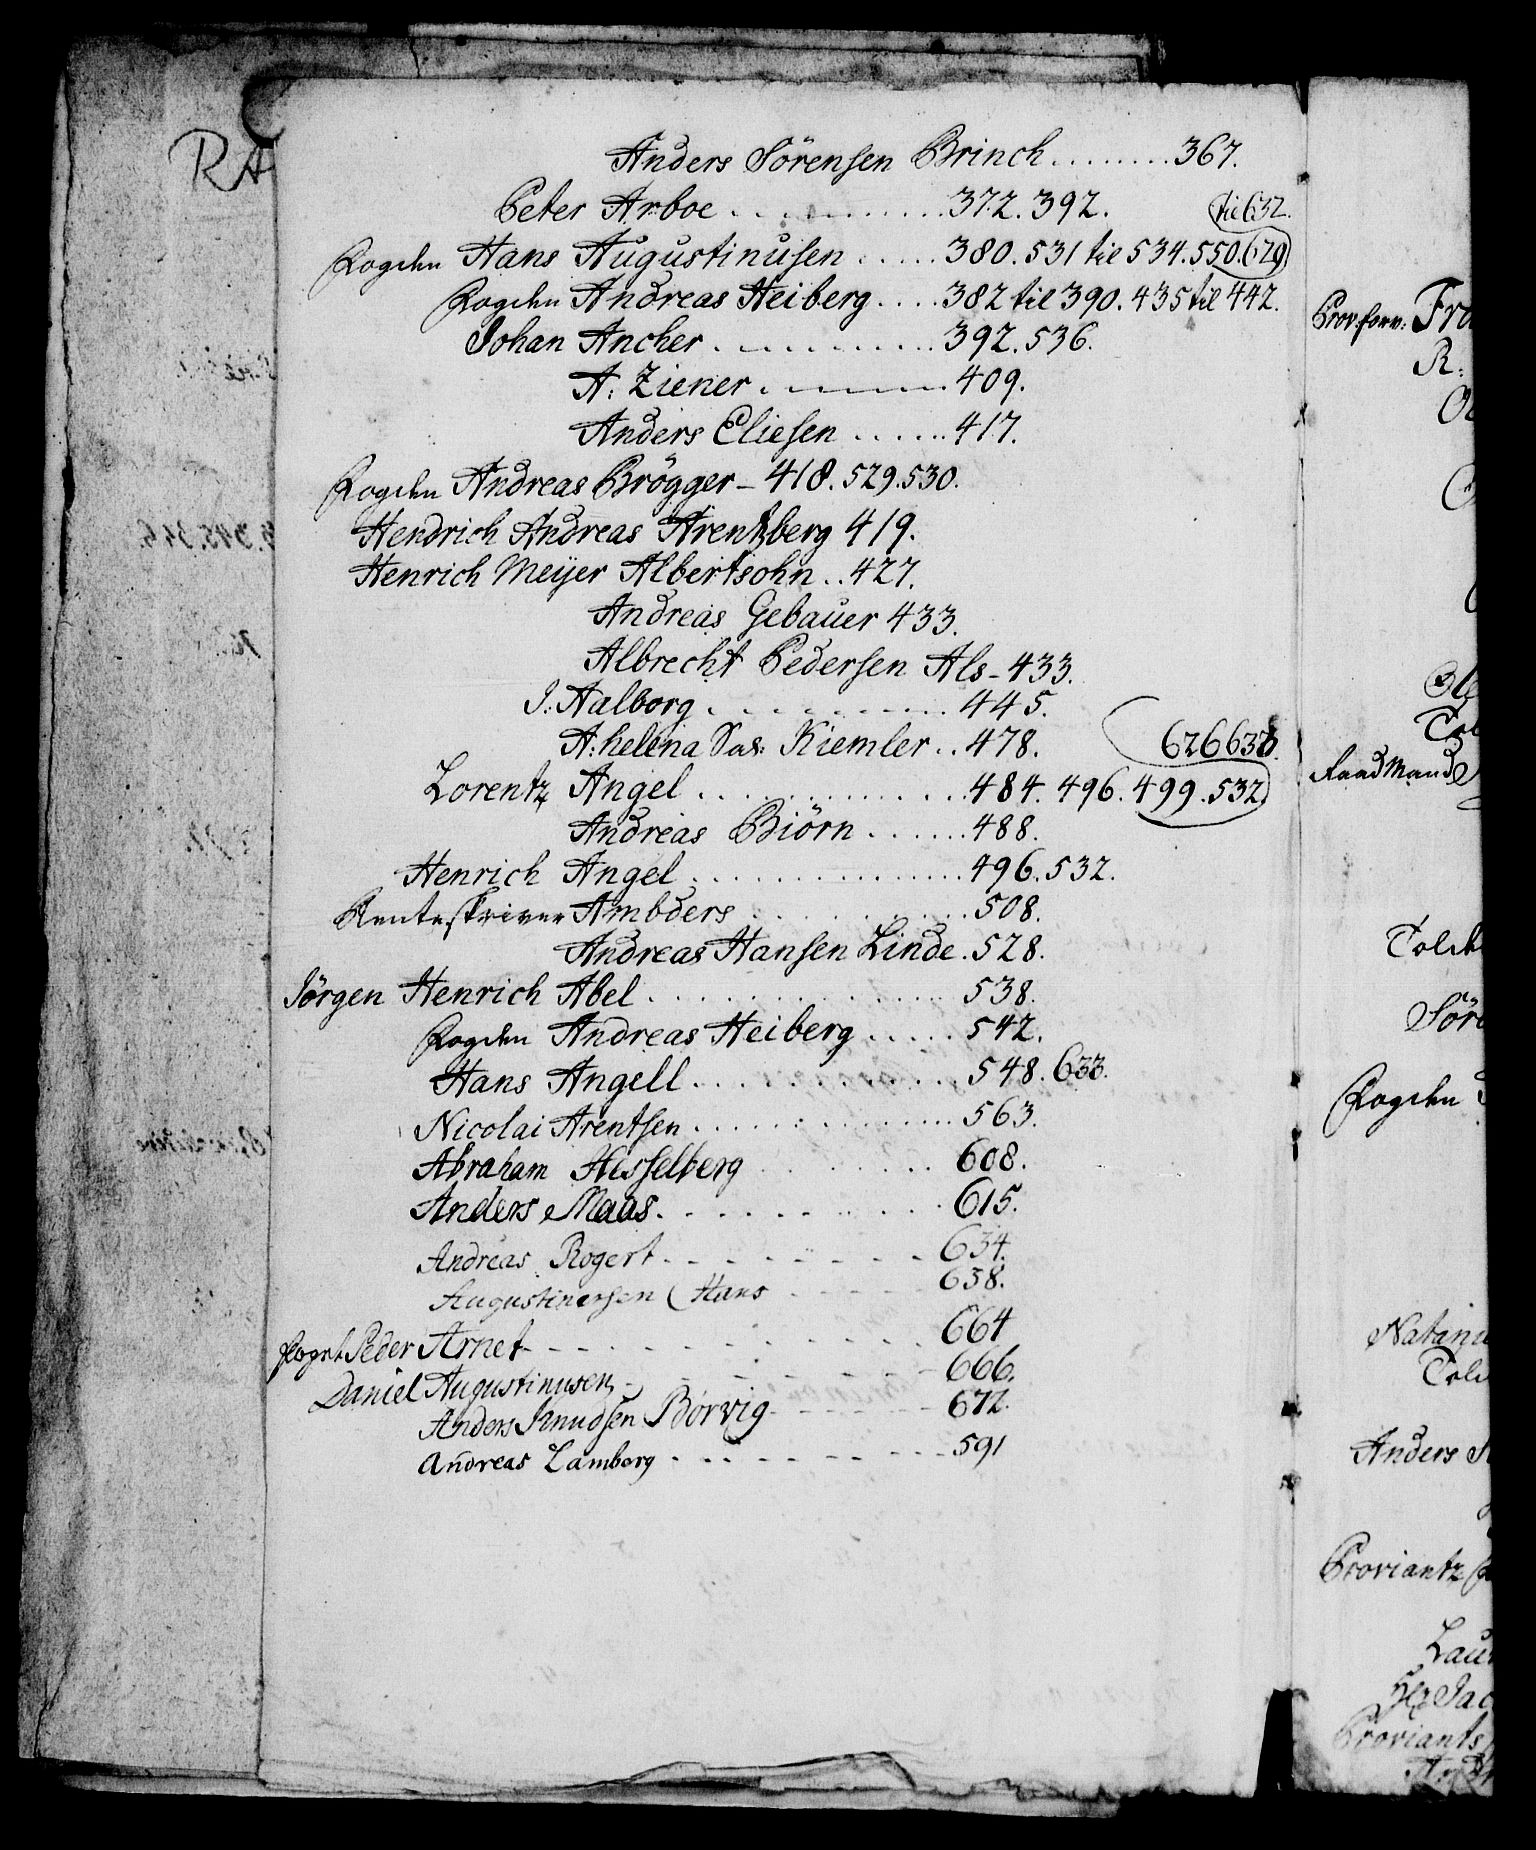 RA
Anders Sörensen Brinch ........ 367.
Peter Arboe ........... 372. 392.
til 632.
Fogden Hans Augustinusen ..... 380. 531 til 534. 550. 629
Fogden Andreas Heiberg .... 382 til 390. 435 til 442.
Johan Ancher ........... 392. 536.
A: Ziener ........ 409.
Anders Eliesen ...... 417.
Fogden Andreas Brögger - 418. 529. 530.
Hendrich Andreas Arentzberg 419.
Henrich Meijer Albertsohn .. 427.
Andreas Gebauer 433.
Albrecht Pedersen Als - 433.
J: Aalborg .......... 445.
A: helena Sal: Kiemler .. 478.
626 63
Lorentz Angel ............. 484. 496. 499. 532.
Andreas Biörn ...... 488.
Henrich Angel .............. 496. 532.
Renteskriver Ambders ........... 508.
Andreas Hansen Linde . 528.
Jörgen Henrich Abel .............. 538.
Fogden Andreas Heiberg ..... 542.
Hans Angell ............. 548. 633.
Nicolai Arentsen ............. 563.
Abraham Hesselberg ........ 608.
Anders Maas ......... 615.
Andreas Rogert - - - - - - - - 634.
Augustinersen Hans - - - - - 638.
Foget Peder Arnet - - - - - - - - - 664
Daniel Augustinusen - - - - - - - 666.
Anders Knudsen Börvig - - - - - - 672.
Andreas Lamberg - - - - - - - - 591
Prov: forv: Fra
R:
Tol
Raadmand
Told
Söre
Fogden
Natani
Told
Anders
Proviantz
Lau
Hr Jac
Proviants